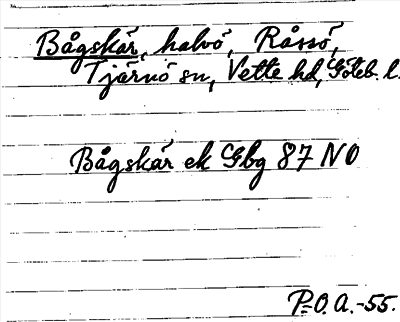 Bågskär, halvö, Råssö,
Tjärnö sn, Vette hd, Göteb. l.
Bågskär ek Gbg 87 NO
P.O.A.-55.